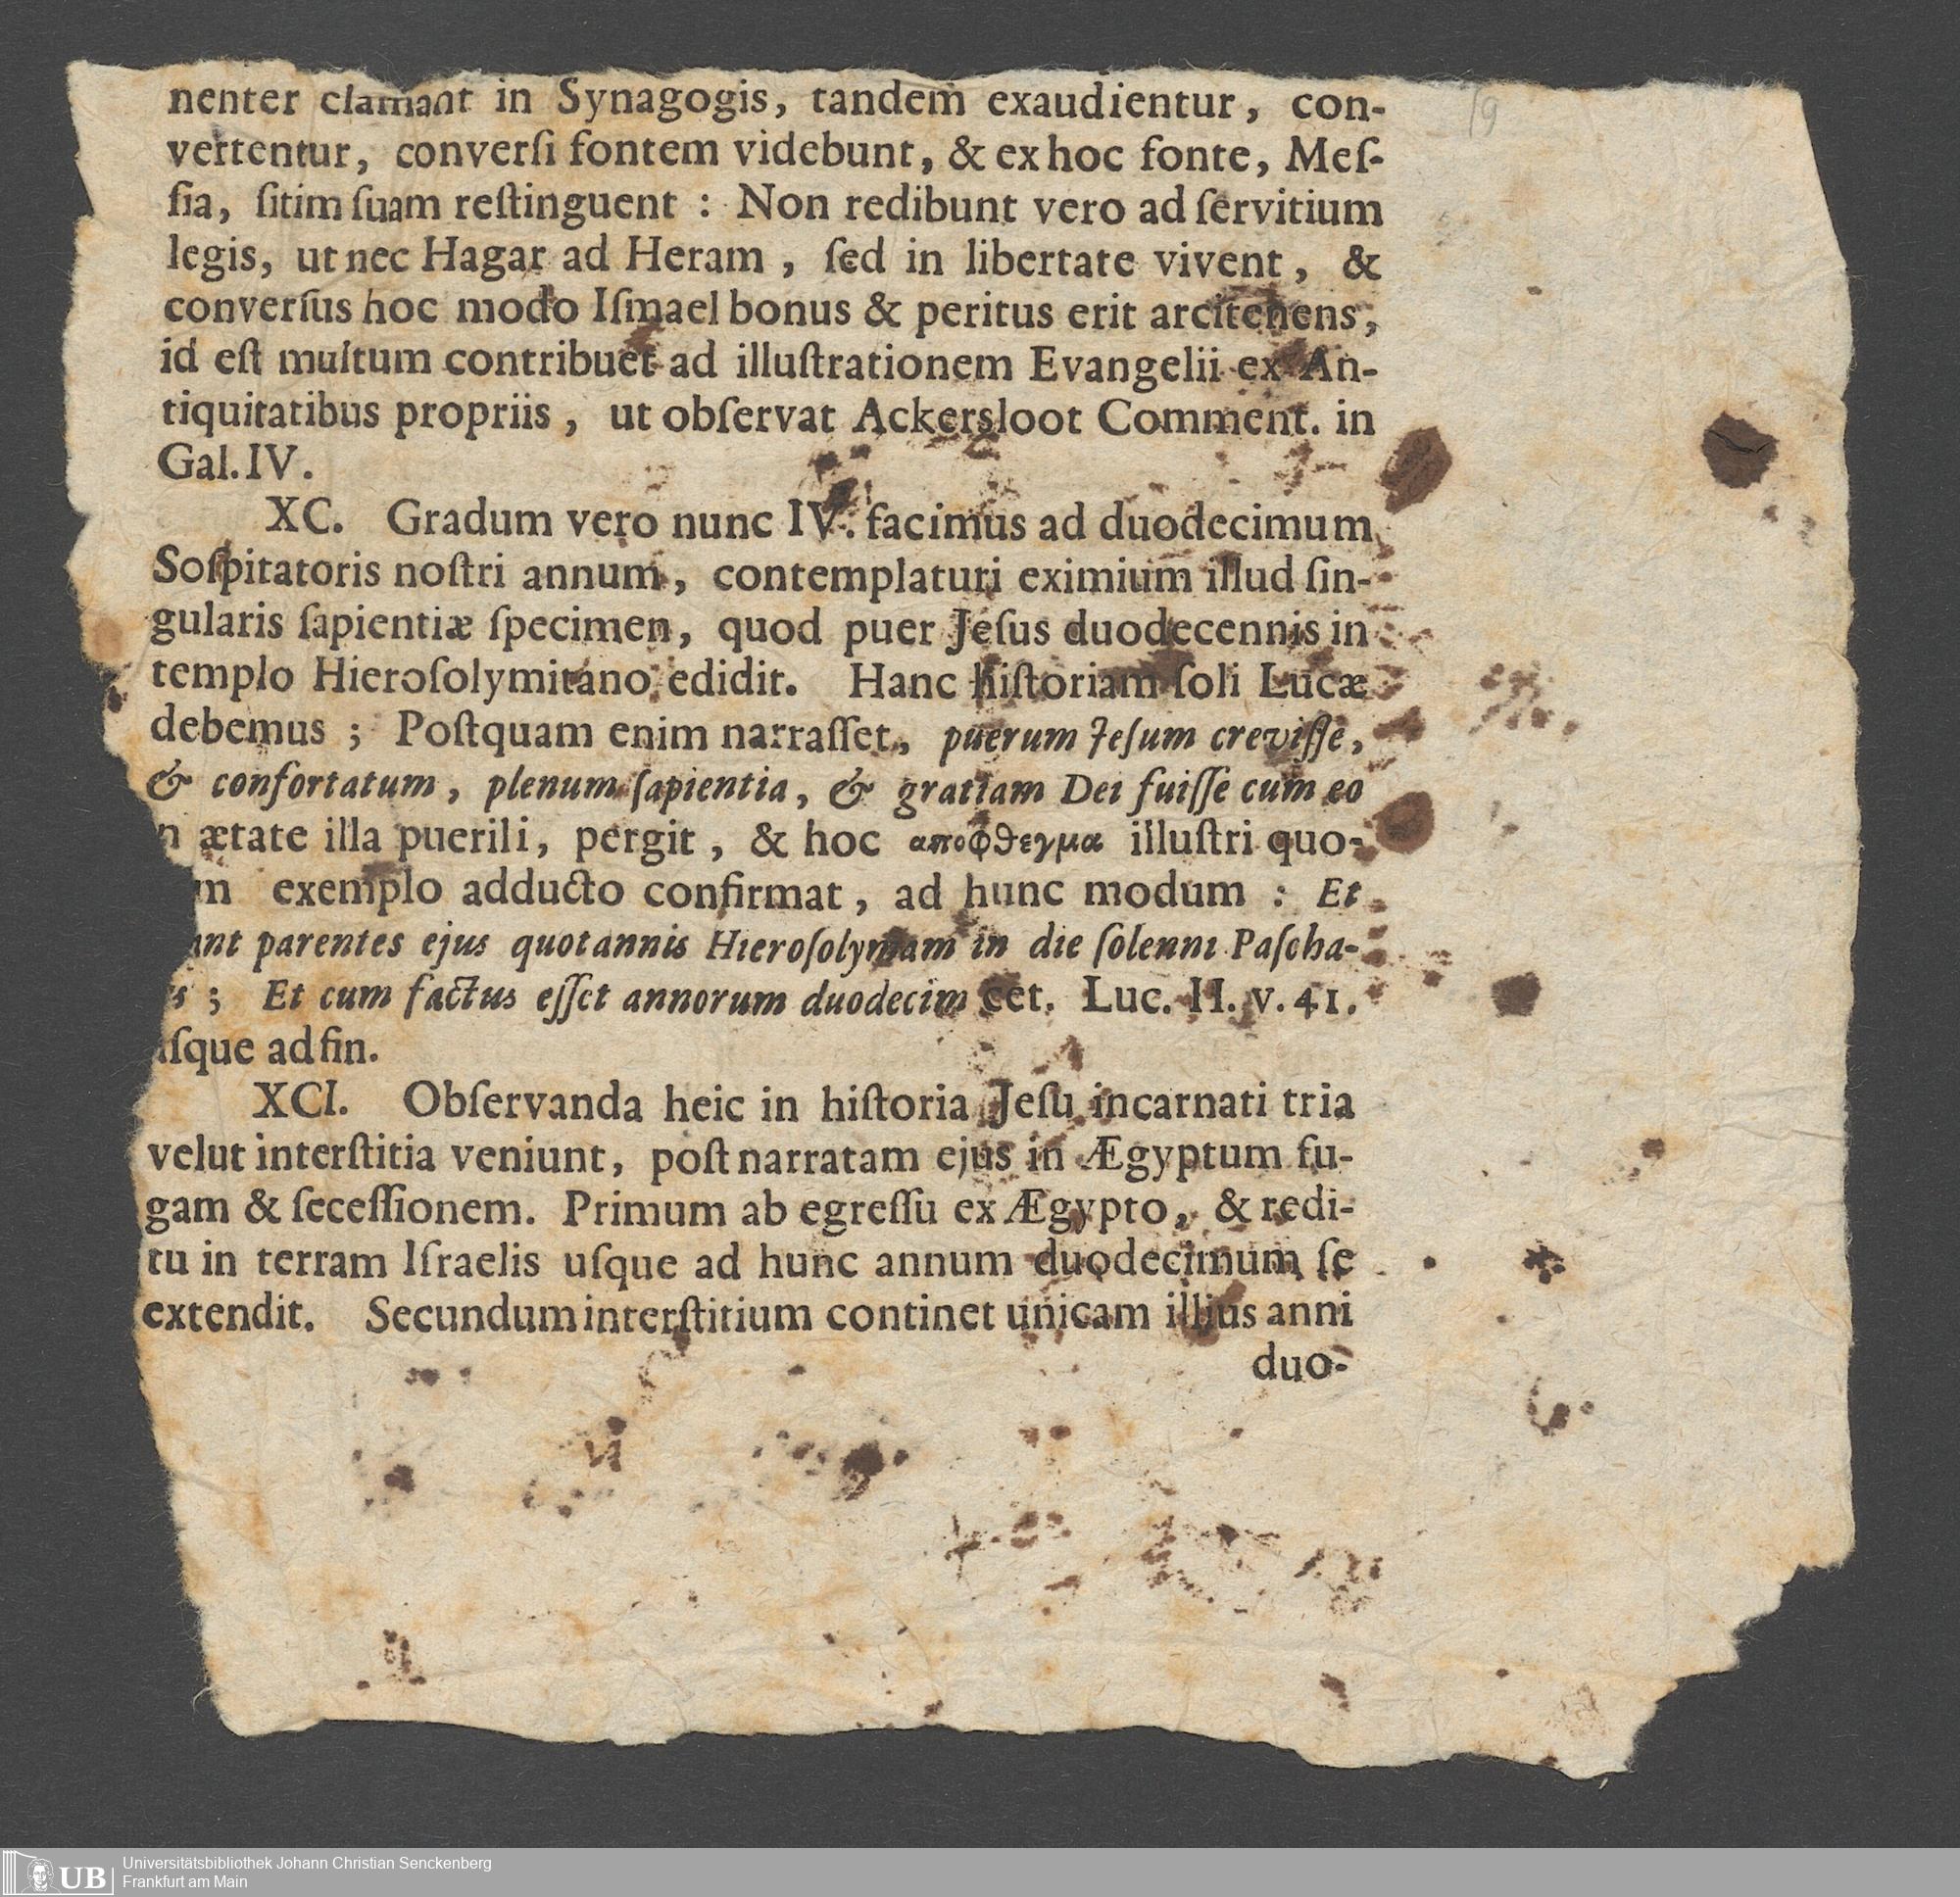 nenter clamant in Synagogis, tandem exaudientur, con-
vertentur, converſi fontem videbunt, & ex hoc fonte, Meſ-
ſia, ſitim ſuam reſtinguent : Non redibunt vero ad ſervitium
legis, ut nec Hagar ad Heram, ſed in libertate vivent, &
converſus hoc modo Iſmael bonus & peritus erit arcitenens,
id eſt multum contribuet ad illuſtrationem Evangelii ex An-
tiquitatibus propriis, ut obſervat Ackersloot Comment. in
Gal. IV.
XC. Gradum vero nunc IV. facimus ad duodecimum
Soſpitatoris noſtri annum, contemplaturi eximium illud ſin-
gularis ſapientiæ ſpecimen, quod puer Jeſus duodecennis in
templo Hieroſolymitano edidit. Hanc hiſtoriam ſoli Lucæ
debemus ; Poſtquam enim narraſſet, puerum Jeſum creviſſe,
& confortatum, plenum ſapientia, & gratiam Dei fuiſſe cum eo
n ætate illa puerili, pergit, & hoc αποφθεγμα illuſtri quo-
m exemplo adducto confirmat, ad hunc modum : Et
ant parentes ejus quotannis Hieroſolymam in die ſolenni Paſcha-
is ; Et cum factus eſſet annorum duodecim cet. Luc. II. v. 41.
uſque ad fin.
XCI. Obſervanda heic in hiſtoria Jeſu incarnati tria
velut interſtitia veniunt, poſt narratam ejus in Ægyptum fu-
gam & ſeceſſionem. Primum ab egreſſu ex Ægypto, & redi-
tu in terram Iſraelis uſque ad hunc annum duodecimum ſe
extendit. Secundum interſtitium continet unicam illius anni
duo-
19
UB
Universitätsbibliothek Johann Christian Senckenberg
Frankfurt am Main